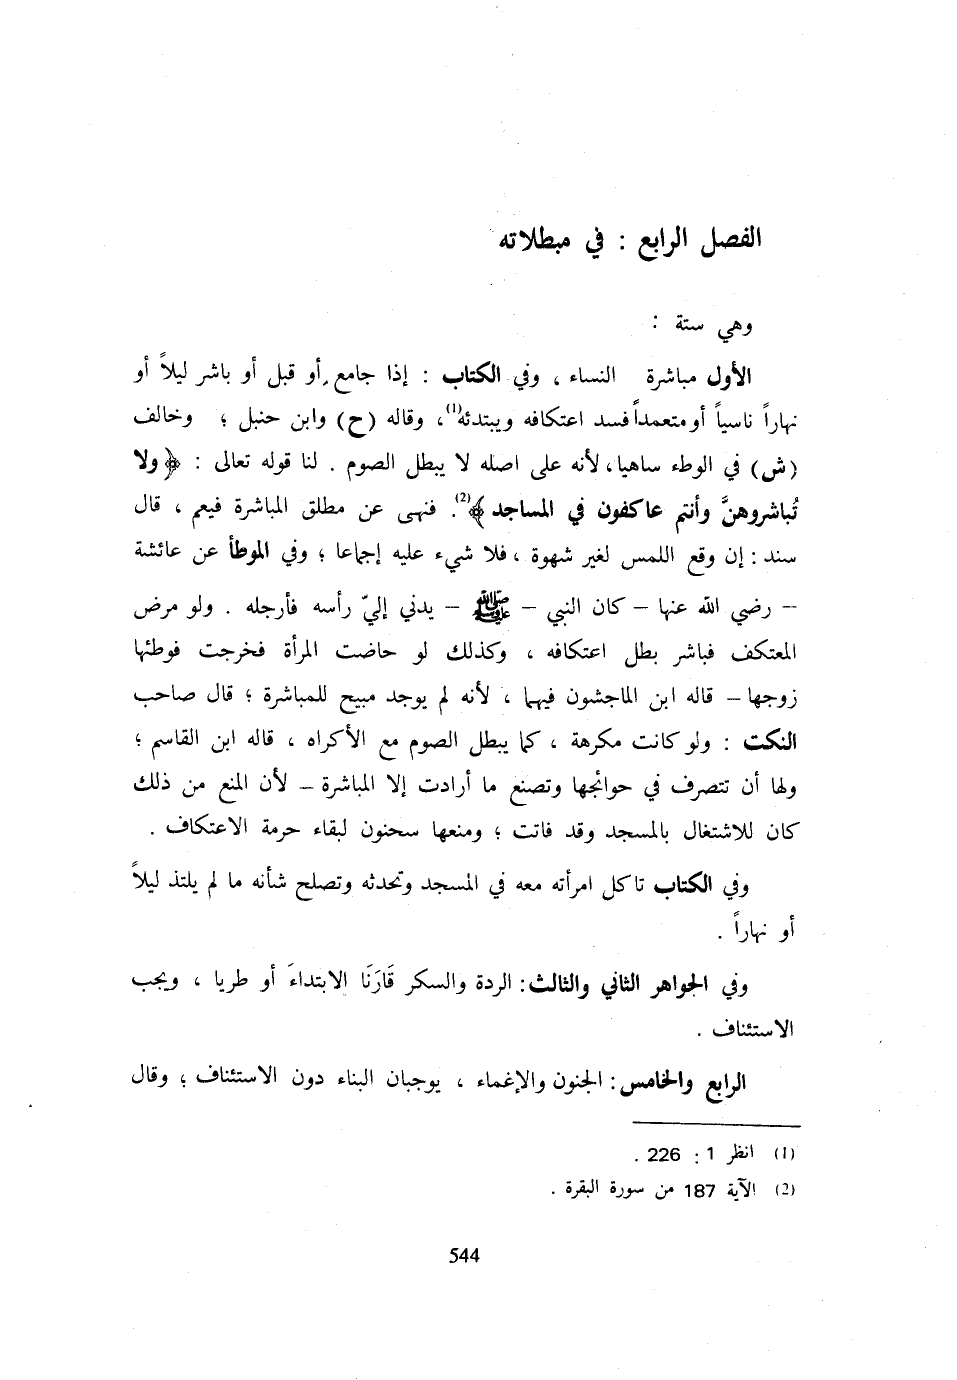 الفصل الرابع : في مبطلاته
وهي ستة :
الأول مباشرة النساء ، وفي الكتاب : إذا جامع أو قبل أو باشر ليلاً أو
نهاراً ناسياً أو متعمداً فسد اعتكافه ويبتدئه(1)، وقاله (ح) وابن حنبل ؛ وخالف
(ش) في الوطء ساهيا، لأنه على اصله لا يبطل الصوم . لنا قوله تعالى : ﴿ولا
تُباشروهنَّ وأنتم عاكفون في المساجد﴾(2). فنهى عن مطلق المباشرة فيعم ، قال
سند : إن وقع اللمس لغير شهوة ، فلا شيء عليه إجماعا ؛ وفي الموطأ عن عائشة
-- رضي الله عنها – كان النبي – ﷺ – يدني إليّ رأسه فأرجله . ولو مرض
المعتكف فباشر بطل اعتكافه ، وكذلك لو حاضت المرأة فخرجت فوطئها
زوجها – قاله ابن الماجشون فيهما ، لأنه لم يوجد مبيح للمباشرة ؛ قال صاحب
النكت : ولو كانت مكرهة ، كما يبطل الصوم مع الأكراه ، قاله ابن القاسم ؛
ولها أن تتصرف في حوائجها وتصنع ما أرادت إلا المباشرة – لأن المنع من ذلك
كان للاشتغال بالمسجد وقد فاتت ؛ ومنعها سحنون لبقاء حرمة الاعتكاف .
وفي الكتاب تاكل امرأته معه في المسجد وتحدثه وتصلح شأنه ما لم يلتذ ليلاً
أو نهاراً .
وفي الجواهر الثاني والثالث : الردة والسكر قَارَنَا الابتداءَ أو طريا ، ويجب
الاستئناف .
الرابع والخامس : الجنون والإغماء ، يوجبان البناء دون الاستئناف ؛ وقال
(1) انظر 1 : 226 .
(2) الآية 187 من سورة البقرة .
544